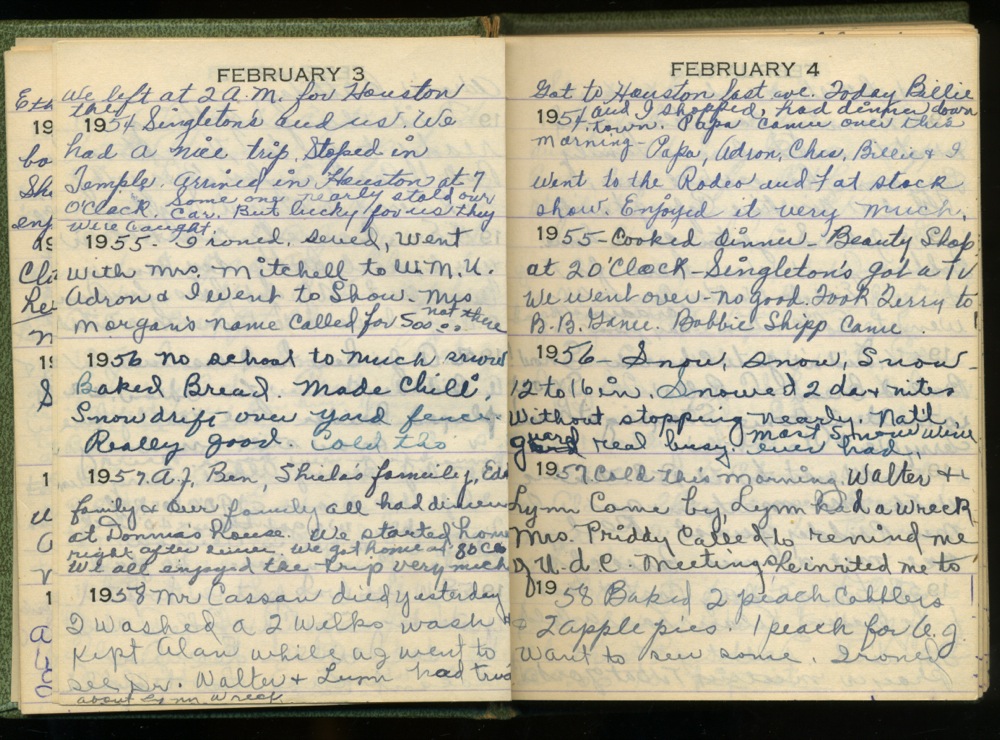 FEBRUARY 3
We left at 2 A.M. for Houston
the
1954 Singletons and us. We
had a nice trip, Stoped in
Temple. Arrived in Houston at 7
O'Clock. Some one nearly stold our
Car. But lucky for us they
were caught.
1955. Ironed, sewed, went
with Mrs. Mitchell to W.M.U.
Adron & I went to Show. Mrs
Morgan's name called for 500 not there
1956 no school to much snow
Baked Bread. Made Chili,
Snow drift over yard fence
Really good. Cold tho
1957. A.J, Ben, Shiela's family, Eds
family & our family all had dinner
at Donnias house. We started home
right after dinner. We got home at 8 o Clo
We all enjoyed the trip very much
1958 Mr Cassan died yesterday
I washed a 2 wilks wash &
Kept Alan while a g went to
see Dr. Walter & Lynn had
about Lynn Wreck
FEBRUARY 4
Got to Houston last eve. Today Billie
1954 and I shopped, had dinner down
town. Papa came over this
morning - Papa, Adron, Ches, Billie & I
went to the Rodeo and Fat stock
show. Enjoyed it very much.
1955 - Cooked dinner - Beauty Shop
at 2 O'Clock - Singleton's got a TV
We went over - no good. Took Terry to
B.B. Game. Bobbie Shipp came.
1956 - Snow, snow, Snow
12 to 16 in. Snowed 2 da & nites
Without stopping nearly. Nat'l
guard real busy. most Snow we've
ever had.
1957. Cold this morning. Walter &
Lynn Came by, Lynn had a wreck
Mrs. Priddy Called to remind me
of U.d.C. Meeting. She invited me to
1958 Baked 2 peach Cobblers
& 2 apple pies. 1 peach for A.g.
Want to sew some. Ironed
19
bo
Sh
enj
19
Cli
He